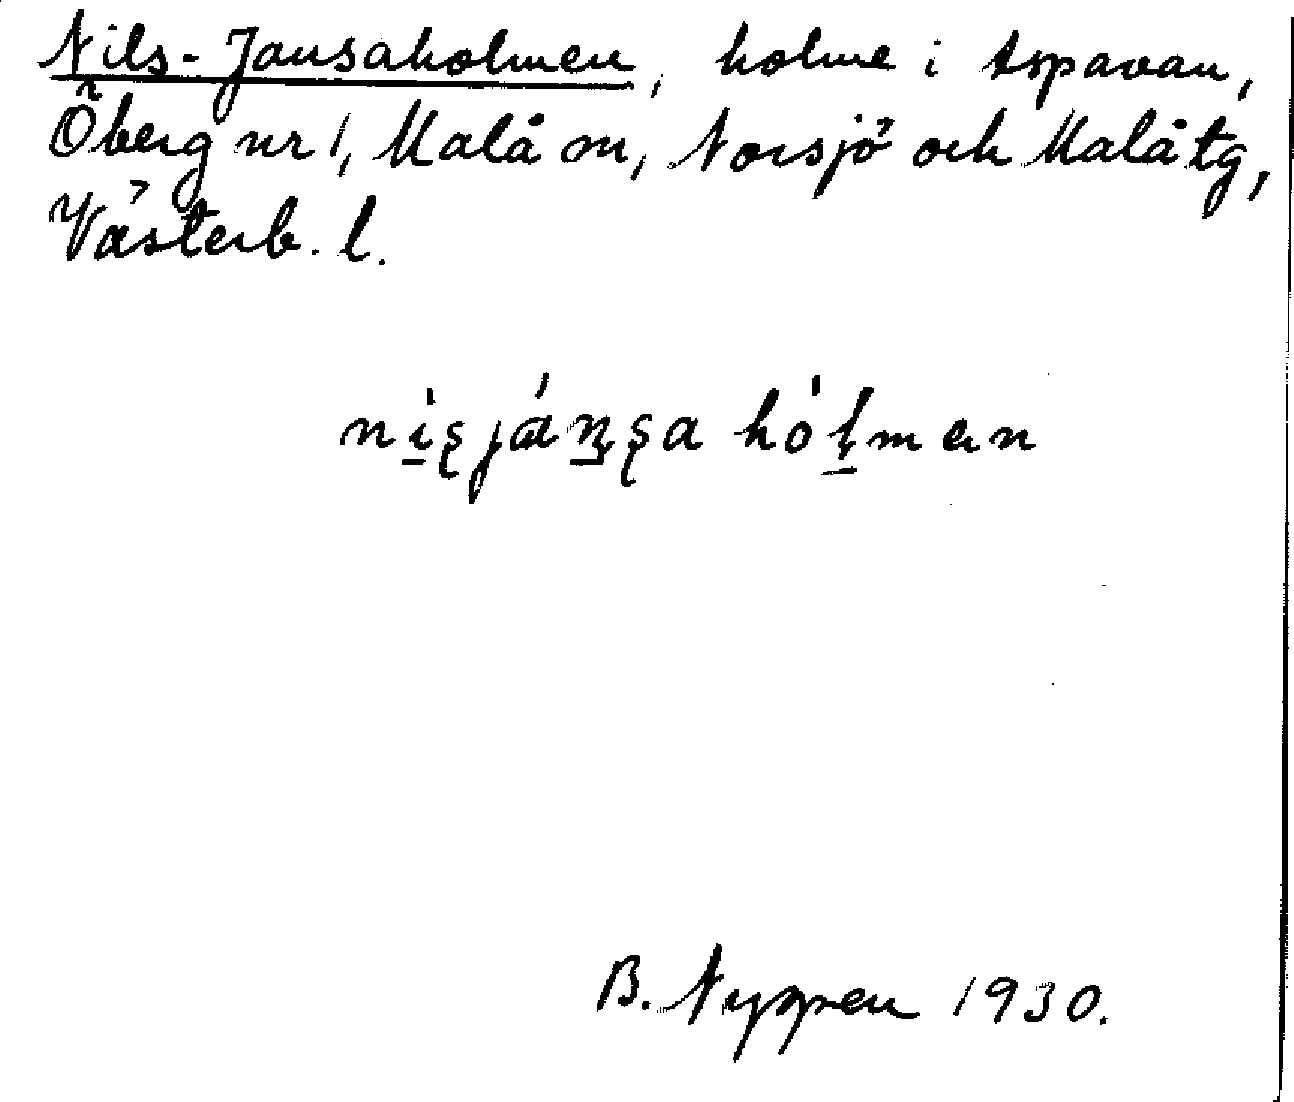 Nils-Jansaholmen, holme i Aspavan,
Öberg nr 1, Malå sn, Norsjö och Malå tg,
Västerb. l.
B. Nygren 1930.